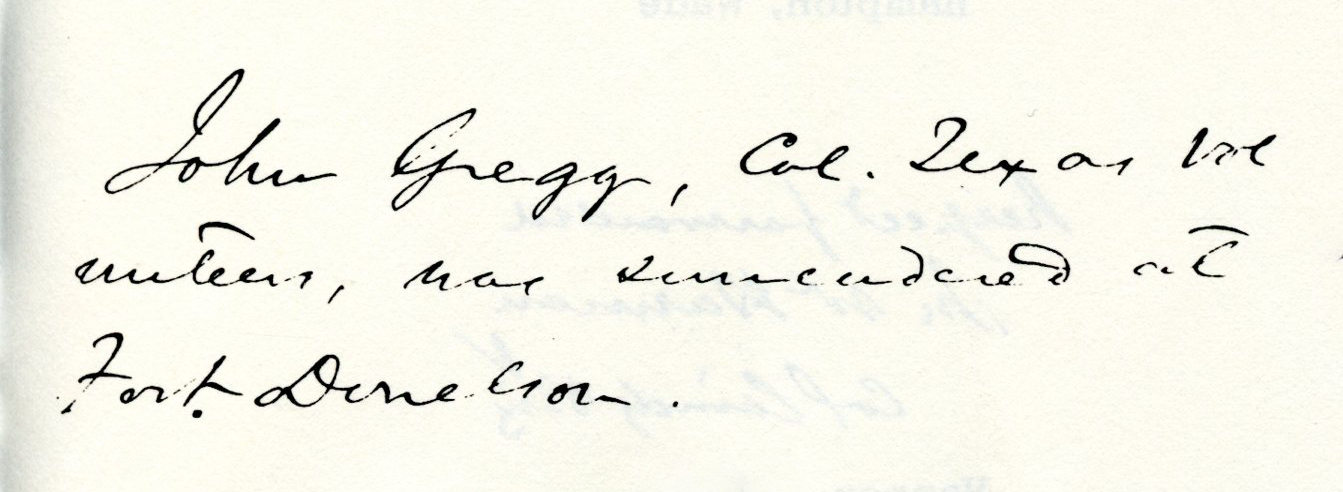 John Gregg, Col. Texas Vol
unteers, was surrendered at
Fort Donelson.